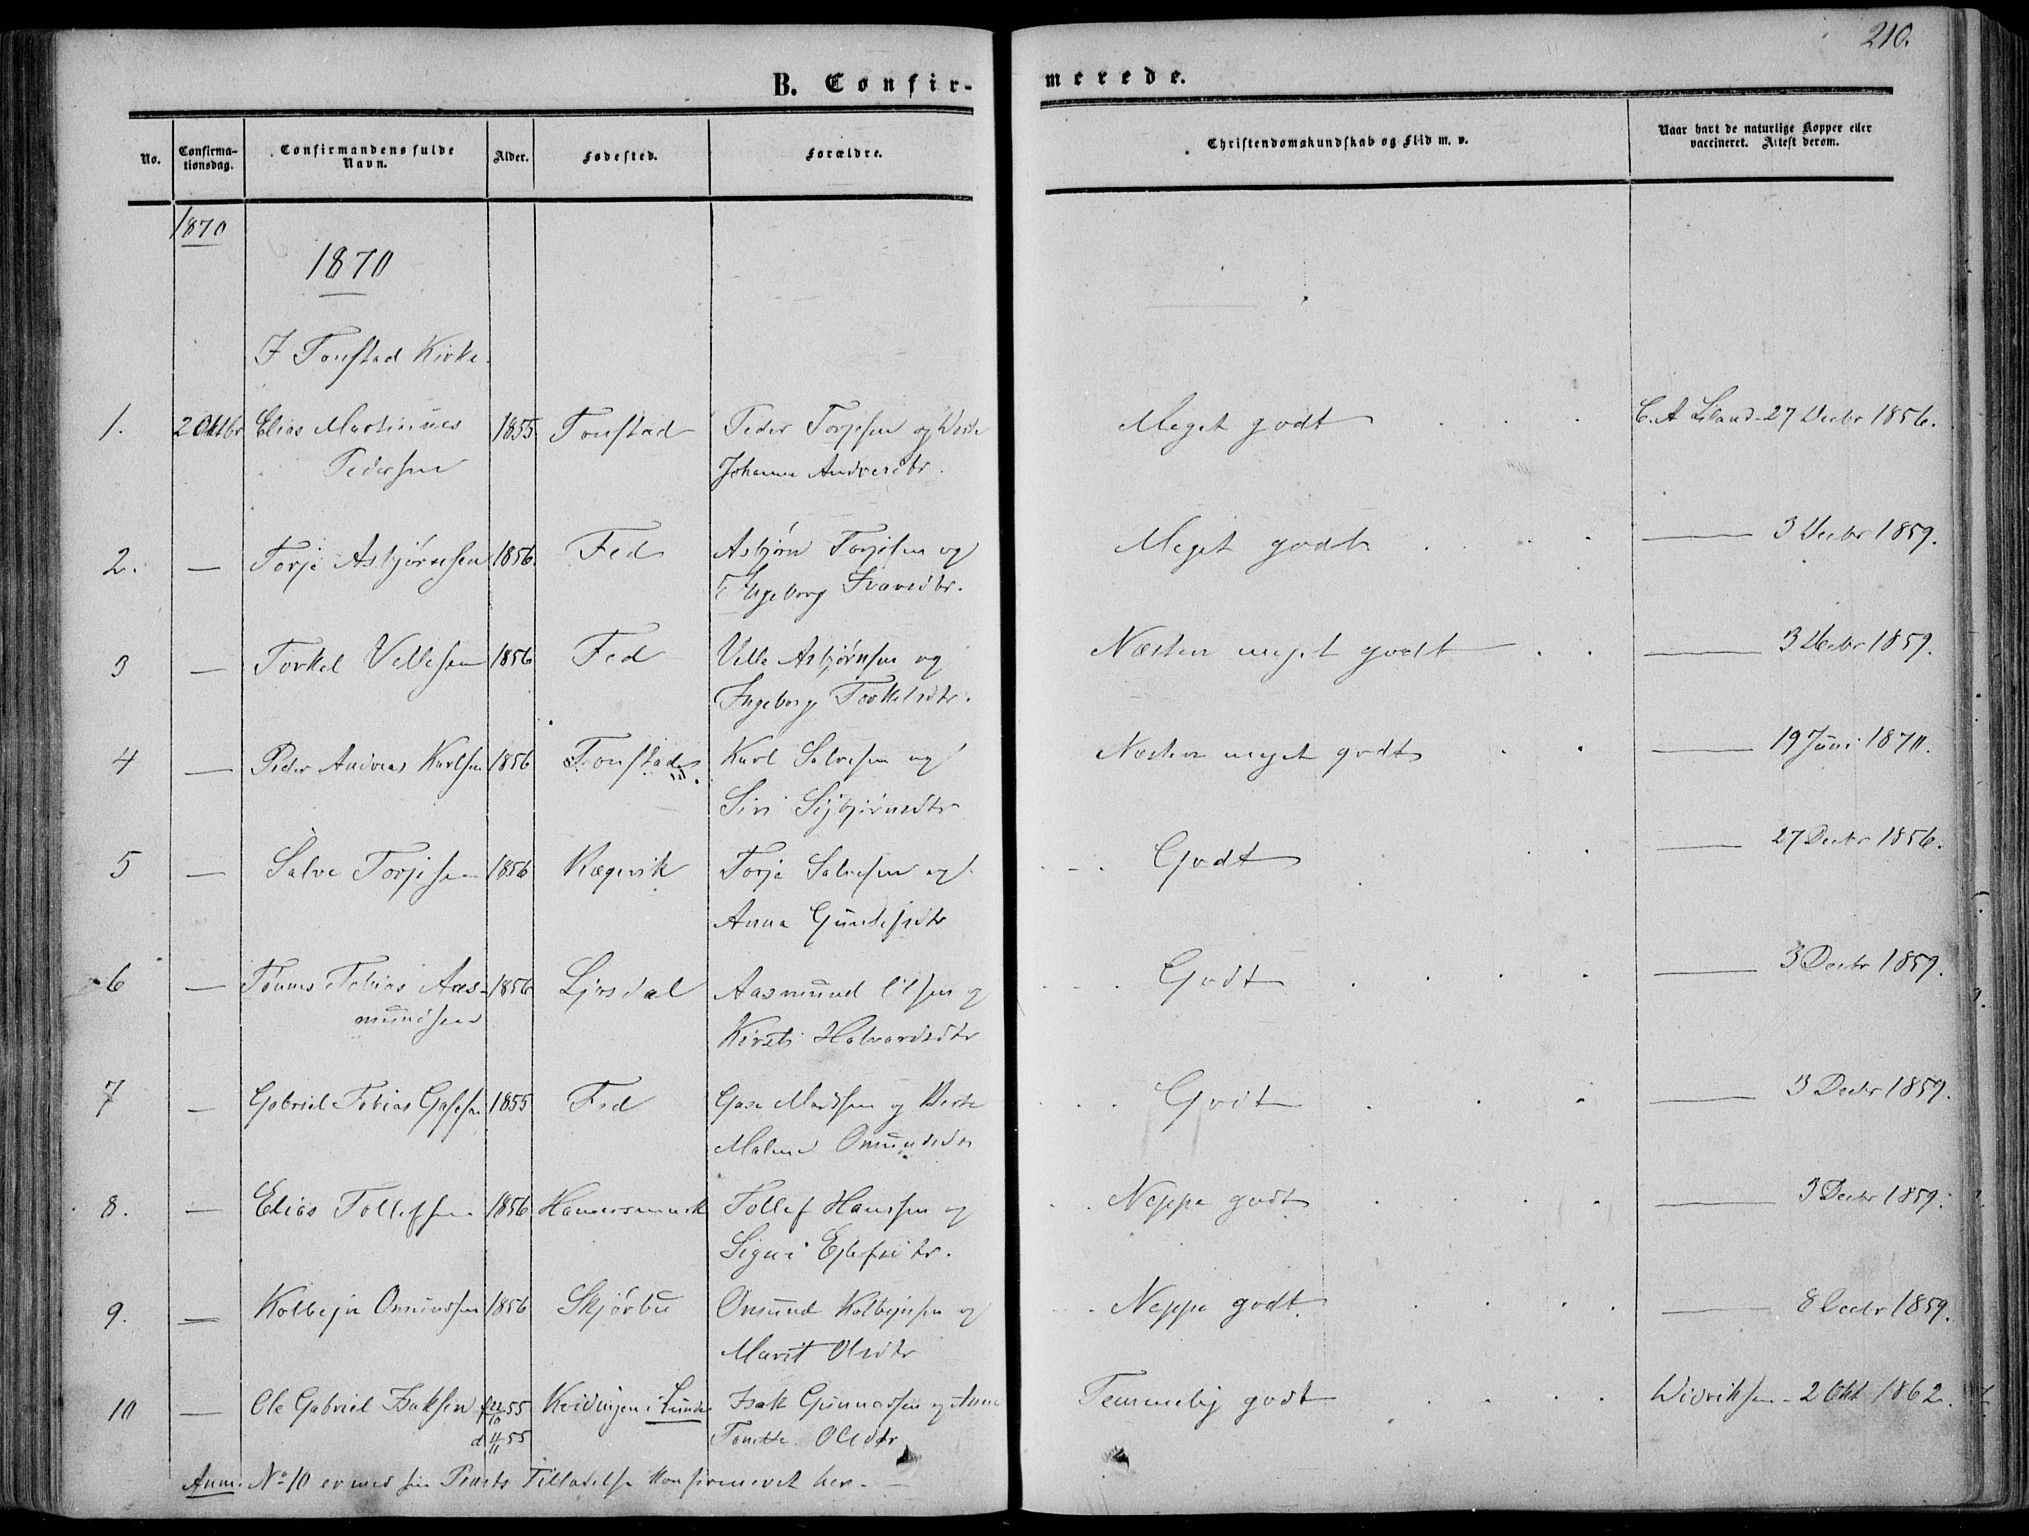 210.
B. Confirmerede.
No.
Confirmationsdag.
Confirmandens fulde Navn.
Alder.
Fødested.
Forældre.
Christendomskundskab og Flid m. v.
Naar havt de naturlige Kopper eller vaccineret. Attest derom.
1870
1870
I Tonstad Kirke.
1. 2 Oktbr Elias Martinius 1855 Tonstad Peder Torjesen og Meget godt C. A 27 Decbr 1856.
Pedersen Johanne Andreasdtr.
2. — Torje Asbjørnsen 1856 Fed Asbjørn Torjesen og Meget godt — 3 Decbr 1859.
Ingeborg Ivarsdtr.
3 — Torkel Vellesen 1856 Fed Velle Asbjørnsen og Næsten meget godt — 3 Decbr 1859.
Ingeborg Torkelsdtr.
4 — Peder Andreas Karlsen 1856 Tonstad Karl Salvesen og Næsten meget godt — 19 Juni 1870.
Siri Sigbjørnsdtr
5 — Salve Torjesen 1856 Rægevik Torje Salvesen og Godt — 27 Decbr 1856.
Anna
6 — Tønnes Tobias Aas- 1856 Ljosdal Aasmund Olsen og Godt — 3 Decbr 1859.
mundsen Kirsti Halvardsdtr
7 — Gabriel Tobias 1855 Fed og Godt — 3 Decbr 1859.
Malene Omundsdtr
8. — Elias Tollefsen 1856 Tollef Hansen og Neppe godt — 3 Decbr 1859.
Signe
9. — Kolbejn Omundsen 1856 Skjørbu Omund Kolbejnsen og Neppe godt — 8 Decbr 1859.
Marit Olsdtr
10 — Ole Gabriel Isaksen 55 i Lunde Isak Gunnarsen og Anne Temmelig godt Widriksen - 2 Okt 1862.
d 4/11 55 Tonette Olsdtr
Anm. No 10 er med sin Præsts Tilladelse konfirmeret her. —